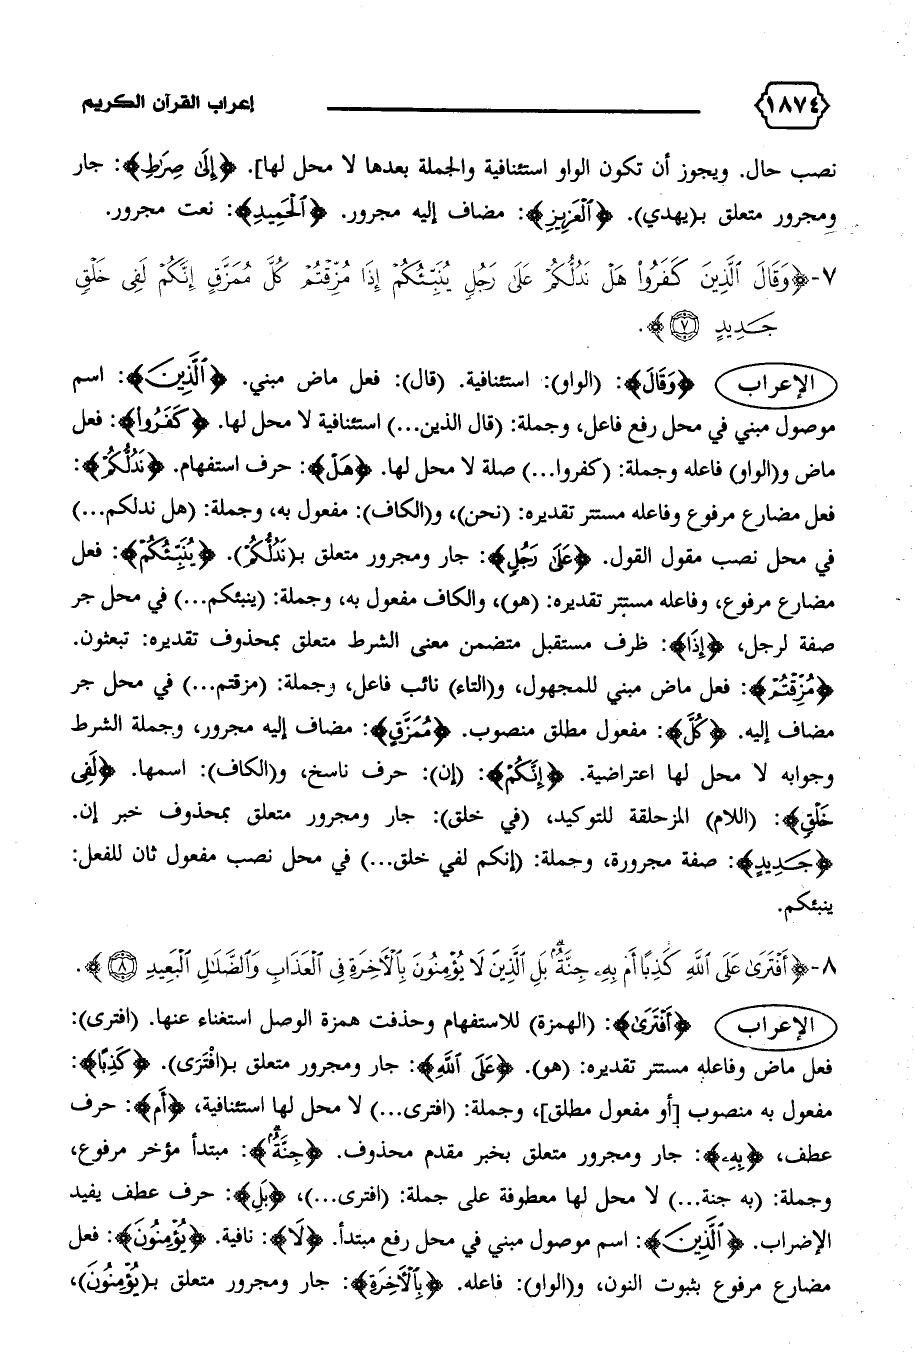 ١٨٧٤ إعراب القرآن الكريم
نصب حال. ويجوز أن تكون الواو استئنافية والجملة بعدها لا محل لها]. ﴿إِلَىٰ صِرَٰطِ﴾: جار
ومجرور متعلق بـ(يهدي). ﴿ٱلْعَزِيزِ﴾: مضاف إليه مجرور. ﴿ٱلْحَمِيدِ﴾: نعت مجرور.
٧-﴿وَقَالَ ٱلَّذِينَ كَفَرُوا۟ هَلْ نَدُلُّكُمْ عَلَىٰ رَجُلٍ يُنَبِّئُكُمْ إِذَا مُزِّقْتُمْ كُلَّ مُمَزَّقٍ إِنَّكُمْ لَفِى خَلْقٍ
جَدِيدٍ ٧﴾.
الإعراب ﴿وَقَالَ﴾: (الواو): استئنافية. (قال): فعل ماض مبني. ﴿ٱلَّذِينَ﴾: اسم
موصول مبني في محل رفع فاعل، وجملة: (قال الذين...) استئنافية لا محل لها. ﴿كَفَرُوا۟﴾: فعل
ماض و(الواو) فاعله وجملة: (كفروا...) صلة لا محل لها. ﴿هَلْ﴾: حرف استفهام. ﴿نَدُلُّكُمْ﴾:
فعل مضارع مرفوع وفاعله مستتر تقديره: (نحن)، و(الكاف): مفعول به، وجملة: (هل ندلكم...)
في محل نصب مقول القول. ﴿عَلَىٰ رَجُلٍ﴾: جار ومجرور متعلق بـ(نَدُلُّكُمْ). ﴿يُنَبِّئُكُمْ﴾: فعل
مضارع مرفوع، وفاعله مستتر تقديره: (هو)، والكاف مفعول به، وجملة: (ينبئكم...) في محل جر
صفة لرجل، ﴿إِذَا﴾: ظرف مستقبل متضمن معنى الشرط متعلق بمحذوف تقديره: تبعثون.
﴿مُزِّقْتُمْ﴾: فعل ماض مبني للمجهول، و(التاء) نائب فاعل، وجملة: (مزقتم...) في محل جر
مضاف إليه. ﴿كُلَّ﴾: مفعول مطلق منصوب. ﴿مُمَزَّقٍ﴾: مضاف إليه مجرور، وجملة الشرط
وجوابه لا محل لها اعتراضية. ﴿إِنَّكُمْ﴾: (إن): حرف ناسخ، و(الكاف): اسمها. ﴿لَفِى
خَلْقٍ﴾: (اللام) المزحلقة للتوكيد، (في خلق): جار ومجرور متعلق بمحذوف خبر إن.
﴿جَدِيدٍ﴾: صفة مجرورة، وجملة: (إنكم لفي خلق...) في محل نصب مفعول ثان للفعل:
ينبئكم.
٨-﴿أَفْتَرَىٰ عَلَى ٱللَّهِ كَذِبًا أَم بِهِۦ جِنَّةٌۢ بَلِ ٱلَّذِينَ لَا يُؤْمِنُونَ بِٱلْءَاخِرَةِ فِى ٱلْعَذَابِ وَٱلضَّلَٰلِ ٱلْبَعِيدِ ٨﴾.
الإعراب ﴿أَفْتَرَىٰ﴾: (الهمزة) للاستفهام وحذفت همزة الوصل استغناء عنها. (افترى):
فعل ماض وفاعله مستتر تقديره: (هو). ﴿عَلَى ٱللَّهِ﴾: جار ومجرور متعلق بـ(افْتَرَى). ﴿كَذِبًا﴾:
مفعول به منصوب [أو مفعول مطلق]، وجملة: (افترى...) لا محل لها استئنافية، ﴿أَم﴾: حرف
عطف، ﴿بِهِۦ﴾: جار ومجرور متعلق بخبر مقدم محذوف. ﴿جِنَّةٌۢ﴾: مبتدأ مؤخر مرفوع،
وجملة: (به جنة...) لا محل لها معطوفة على جملة: (افترى...)، ﴿بَلِ﴾: حرف عطف يفيد
الإضراب. ﴿ٱلَّذِينَ﴾: اسم موصول مبني في محل رفع مبتدأ. ﴿لَا﴾: نافية. ﴿يُؤْمِنُونَ﴾: فعل
مضارع مرفوع بثبوت النون، و(الواو): فاعله. ﴿بِٱلْءَاخِرَةِ﴾: جار ومجرور متعلق بـ(يُؤْمِنُونَ)،